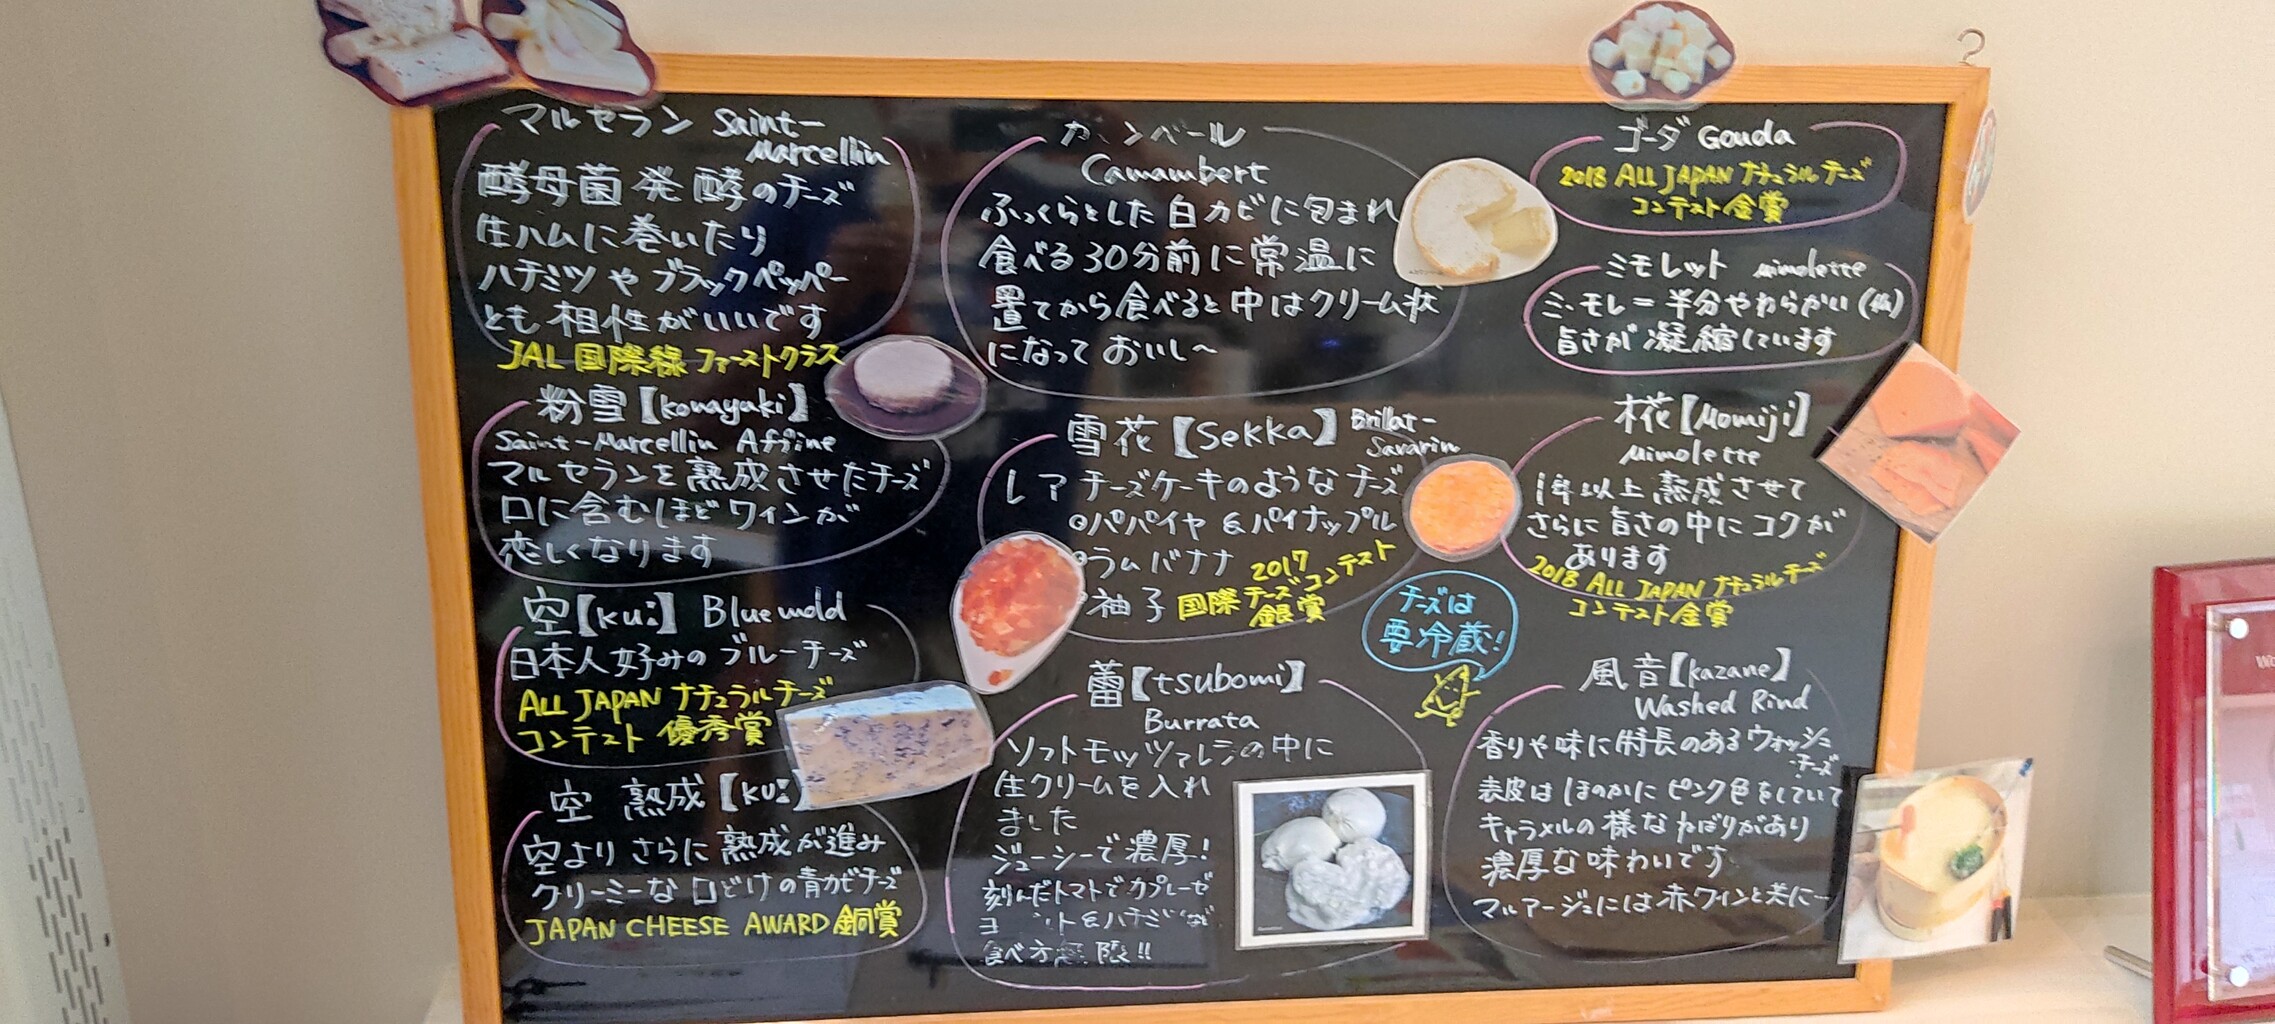 マルセラン Saint-
Marcellin
酵母菌発酵のチーズ
生ハムに巻いたり
ハチミツやブラックペッパー
とも相性がいいです
JAL国際線ファーストクラス
粉雪【konayuki】
Saint-Marcellin Affine
マルセランを熟成させたチーズ
口に含むほどワインが
恋しくなります
空【ku:】Blue mold
日本人好みのブルーチーズ
ALL JAPAN ナチュラルチーズ
コンテスト優秀賞
空 熟成【ku:】
空よりさらに熟成が進み
クリーミーな口どけの青カビチーズ
JAPAN CHEESE AWARD 銅賞
カ ンベール
Camambert
ふっくらとした白カビに包まれ
食べる30分前に常温に
置てから食べると中はクリーム状
になっておいし〜
雪花【Sekka】Brillat-
Savarin
レアチーズケーキのようなチーズ
○パパイヤ&パイナップル
○ラムバナナ
柚子
2017
国際チーズコンテスト
銀賞
蕾【tsubomi】
Burrata
ソフトモッツァレラの中に
生クリームを入れ
ました
ジューシーで濃厚!
刻んだトマトでカプレーゼ
ト&ハチミツなど
食べ方無限!!
ゴーダ Gouda
2018 ALL JAPAN ナチュラルチーズ
コンテスト金賞
ミモレット mimolette
ミ・モレ=半分やわらかい(仏)
旨さが凝縮しています
椛【Momiji】
Mimolette
1年以上熟成させて
さらに旨さの中にコクが
あります
2018 ALL JAPAN ナチュラルチーズ
コンテスト金賞
チーズは
要冷蔵!
風音【kazane】
Washed Rind
香りや味に特長のあるウォッシュ
チーズ
表皮はほのかにピンク色をしていて
キャラメルの様なねばりがあり
濃厚な味わいです
マルアージュには赤ワインと共に…